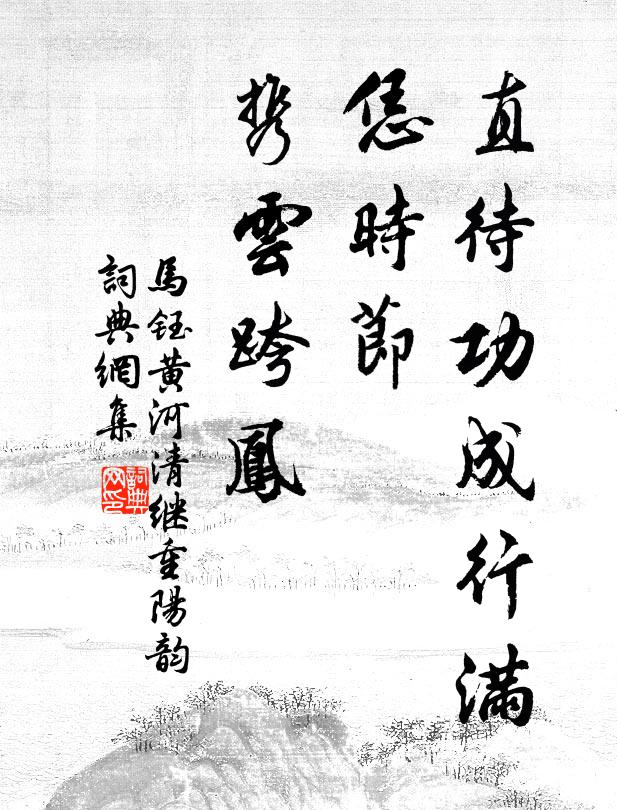 直待功成行满
恁時節
携雲跨鳳
馬鈺黄河清继重陽韵
詞典網集
詞典
网印